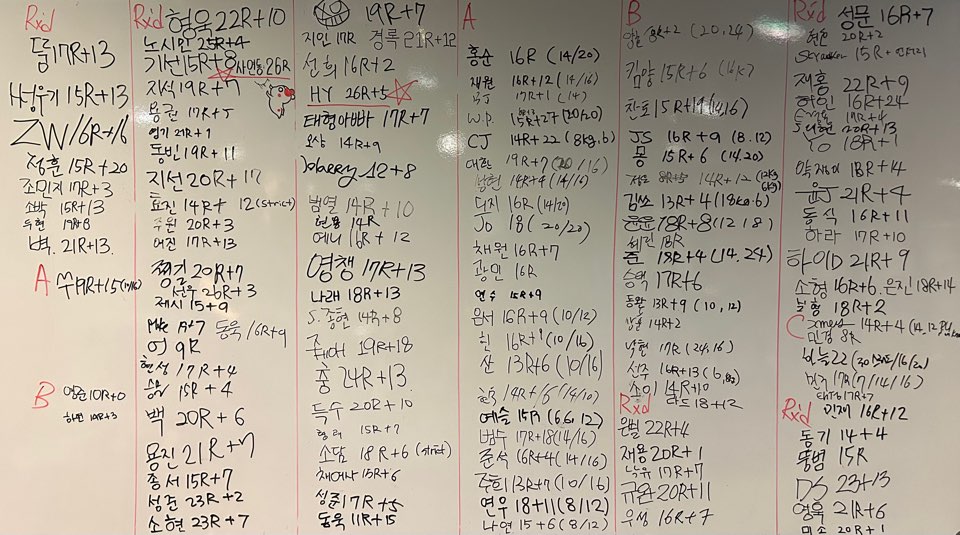 Rxd
둘 17R+13
15R+13
ZW 16R+16
정훈 15R+20
조민지 17R+3
소박 15R+13
두현 19R+8
벽. 21R+13.
A
B
10R+0
하연 10R+3
Rxd 형욱 22R+10
노시인 25R+4
기선 15R+8
사인동 26R
지석 19R+7
용균 17R+5
영기 21R+1
동빈 19R+11
지선 20R+17
효진 14R+12 (strict)
주원 20R+3
여진 17R+13
찡길 20R+7
선우 26R+3
제시 15+9
동욱 16R+9
어 9R
현성 17R+4
15R+4
백 20R+6
용진 21R+7
종서 15R+7
성준 23R+2
소현 23R+7
19R+7
지인 17R 경록 21R+12
선희 16R+2
HY 26R+5
태형아빠 17R+7
14R+9
12+8
범열 14R+10
현용 14R
에니 16R+12
영챙 17R+13
나래 18R+13
S.종현 14R+8
19R+18
중 24R+13
득수 20R+10
15R+7
소담 18R+6 (strict)
15R+6
성준 17R+5
동욱 11R+15
A
홍순 16R (14/20)
재원 16R+12 (14/16)
17R+1 (14)
W.P. 15R+27 (20/20)
CJ 14R+22 (8kg.6)
대한 19R+7 (20/16)
남현 14R+4 (14/16)
덕지 16R (14/20)
JO 18 (20/20)
채원 16R+7
광민 16R
연수 15R+9
윤서 16R+9 (10/12)
힌 16R+1 (10/16)
산 13R+6 (10/16)
현욱 14R+6 (14/10)
예슬 15R (6.6 12)
범수 17R+18 (14/16)
준석 16R+4 (14/16)
주희 13R+7 (10/16)
연우 18+11 (8/12)
나연 15+6 (8/12)
B
8R+2 (20,24)
김양 15R+6 (16k)
찬호 15R+11 (14,16)
JS 16R+9 (8.12)
몽 15R+6 (14.20)
14R+12 (12kg 6kg)
김쏘 13R+4 (13kg.6)
윤윤 18R+8 (12 18)
혜진 18R
준 18R+4 (14.24)
승액 17R+6
동완 13R+9 (10,12)
14R+2
낙현 17R (24,16)
선주 16R+13 (6,8kg)
소이 14R+10
Rxd 담드 18+12
은별 22R+4
재용 20R+1
녹유 17R+7
규원 20R+11
우성 16R+7
Rxd 성문 16R+7
현호 20R+2
15R+
재홍 22R+9
하인 16R+24
19R+4
S.대현 20R+13
YO 18R+1
18R+14
윤J 21R+4
동식 16R+11
하라 17R+10
하이D 21R+9
소형 16R+6. 은진 18R+14
18R+2
C
14R+4
민경 8R
하늘 22
민지 17R (7/14/16)
17R+7
Rxd 민재 16R+12
동기 14+4
뚱범 15R
DS 23+13
영욱 21R+6
미소 20R+1